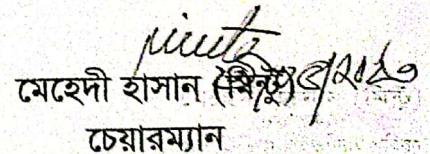 মেহেদী হাসান (মিন্টু)
চেয়ারম্যান